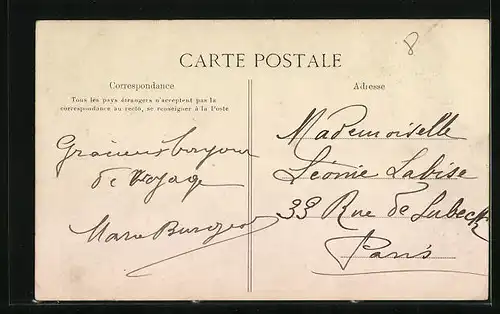 8
CARTE POSTALE
Correspondance
Tous les pays étrangers n'acceptent pas la
correspondance au recto, se renseigner à la Poste
Adresse
Gracieux bonjour
de Voyage
Mademoiselle
Léonie Labise
33 Rue de Lubeck
Paris